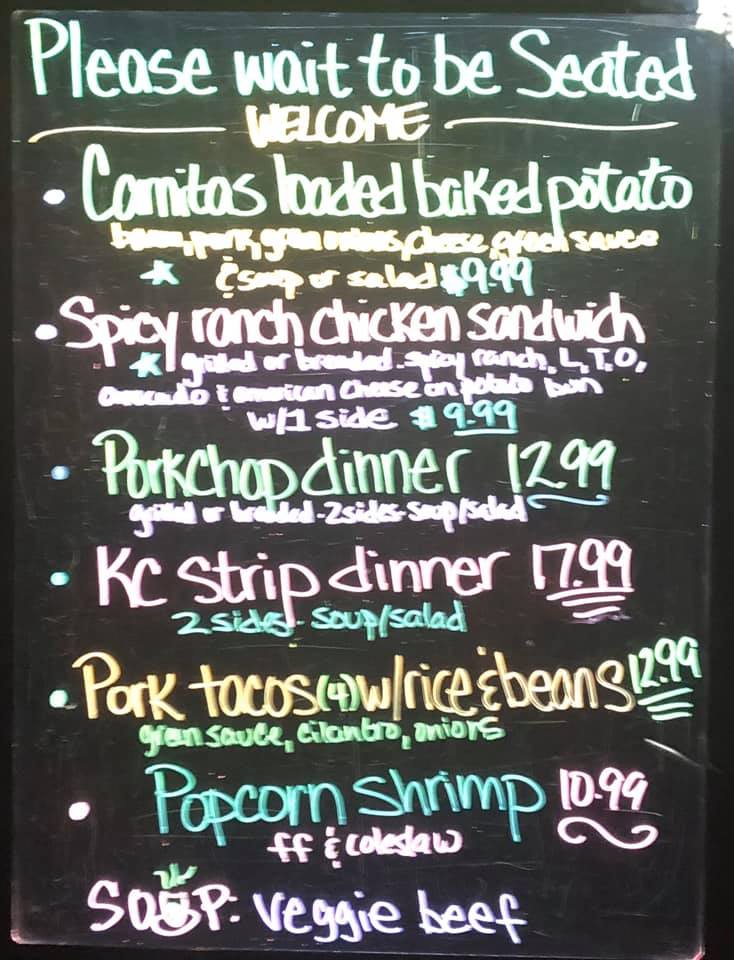 Please wait to be Seated
WELCOME
• Carnitas loaded baked potato
bacon, pork, green onions, cheese, green sauce
& soup or salad $9.99
• Spicy ranch chicken sandwich
grilled or breaded - spicy ranch, L, T, O,
avocado & american cheese on potato bun
w/1 side $9.99
• Porkchop dinner 12.99
grilled or breaded - 2 sides - soup/salad
• KC Strip dinner 17.99
2 sides - soup/salad
• Pork tacos (4) w/rice & beans 12.99
green sauce, cilantro, onions
• Popcorn Shrimp 10.99
ff & coleslaw
SOUP: veggie beef